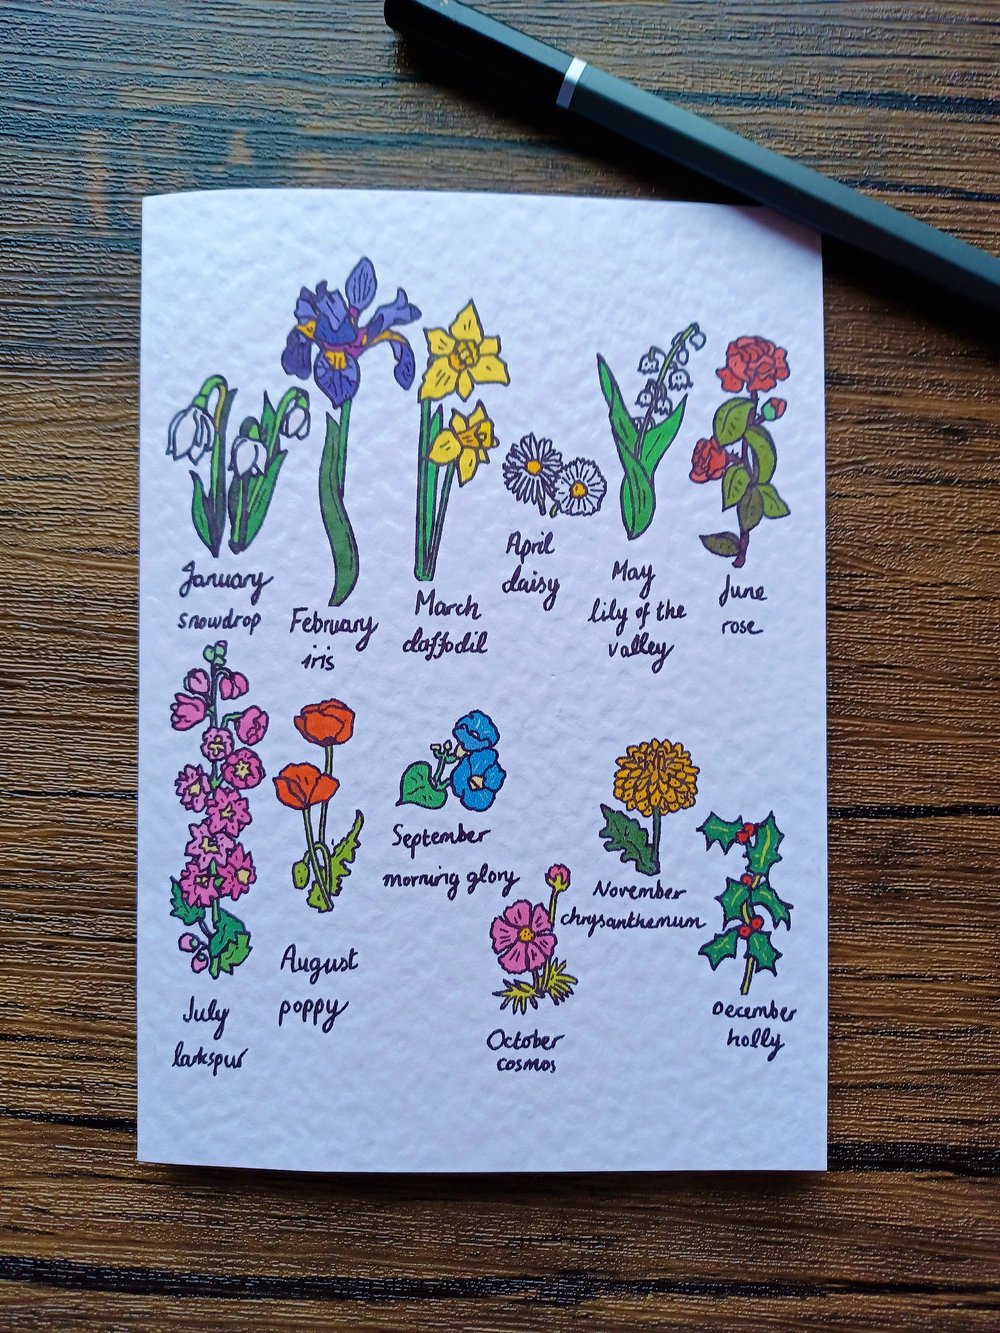 January
snowdrop
February
iris
March
daffodil
April
daisy
May
lily of the
valley
June
rose
July
larkspur
August
poppy
September
morning glory
October
cosmos
November
chrysanthemum
December
holly